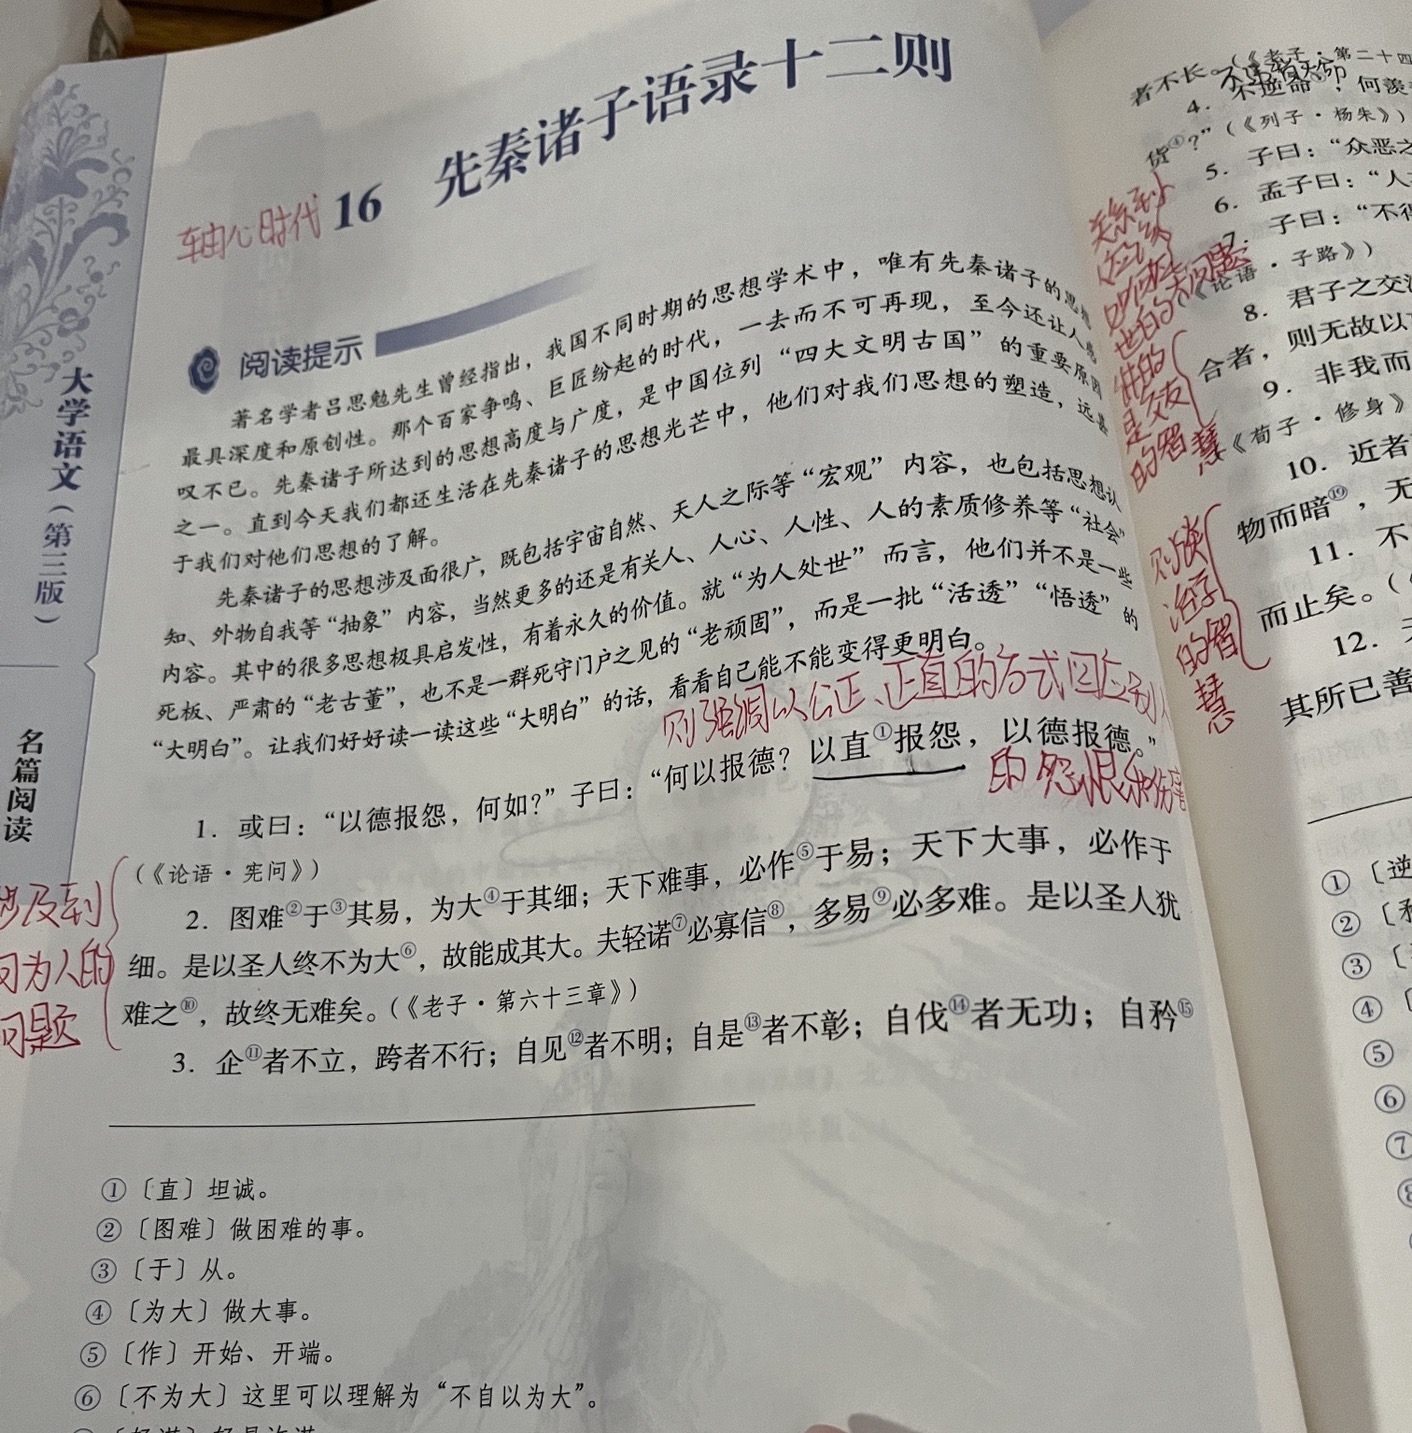 16 先秦诸子语录十二则
轴心时代
阅读提示
著名学者吕思勉先生曾经指出，我国不同时期的思想学术中，唯有先秦诸子的思想
最具深度和原创性。那个百家争鸣、巨匠纷起的时代，一去而不可再现，至今还让人感
叹不已。先秦诸子所达到的思想高度与广度，是中国位列“四大文明古国”的重要原因
之一。直到今天我们都还生活在先秦诸子的思想光芒中，他们对我们思想的塑造，远甚
于我们对他们思想的了解。
先秦诸子的思想涉及面很广，既包括宇宙自然、天人之际等“宏观”内容，也包括思想认
知、外物自我等“抽象”内容，当然更多的还是有关人、人心、人性、人的素质修养等“社会”
内容。其中的很多思想极具启发性，有着永久的价值。就“为人处世”而言，他们并不是一些
死板、严肃的“老古董”，也不是一群死守门户之见的“老顽固”，而是一批“活透”“悟透”的
“大明白”。让我们好好读一读这些“大明白”的话，看看自己能不能变得更明白。
则强调以公正、正直的方式回应到
1. 或曰：“以德报怨，何如？”子曰：“何以报德？以直①报怨，以德报德。”
的怨恨和伤害
（《论语·宪问》）
2. 图难②于③其易，为大④于其细；天下难事，必作⑤于易；天下大事，必作于
细。是以圣人终不为大⑥，故能成其大。夫轻诺⑦必寡信⑧，多易⑨必多难。是以圣人犹
难之⑩，故终无难矣。（《老子·第六十三章》）
3. 企⑪者不立，跨者不行；自见⑫者不明；自是⑬者不彰；自伐⑭者无功；自矜⑮
涉及到
为人的
问题
①〔直〕坦诚。
②〔图难〕做困难的事。
③〔于〕从。
④〔为大〕做大事。
⑤〔作〕开始、开端。
⑥〔不为大〕这里可以理解为“不自以为大”。
大学语文（第三版）
名篇阅读
者不长。（《老子·第二十四
4. 不逆命，何羡
货④？”（《列子·杨朱》）
5. 子曰：“众恶之
6. 孟子曰：“人
7. 子曰：“不得
《论语·子路》）
8. 君子之交淡
合者，则无故以
9. 非我而
《荀子·修身》
10. 近者
物而暗⑲，无
11. 不
而止矣。（
12. 天
其所已善
的问题
交友
的智慧
则谈
治学
的智
慧
①〔逆
②〔
③〔
④〔
⑤
⑥
⑦